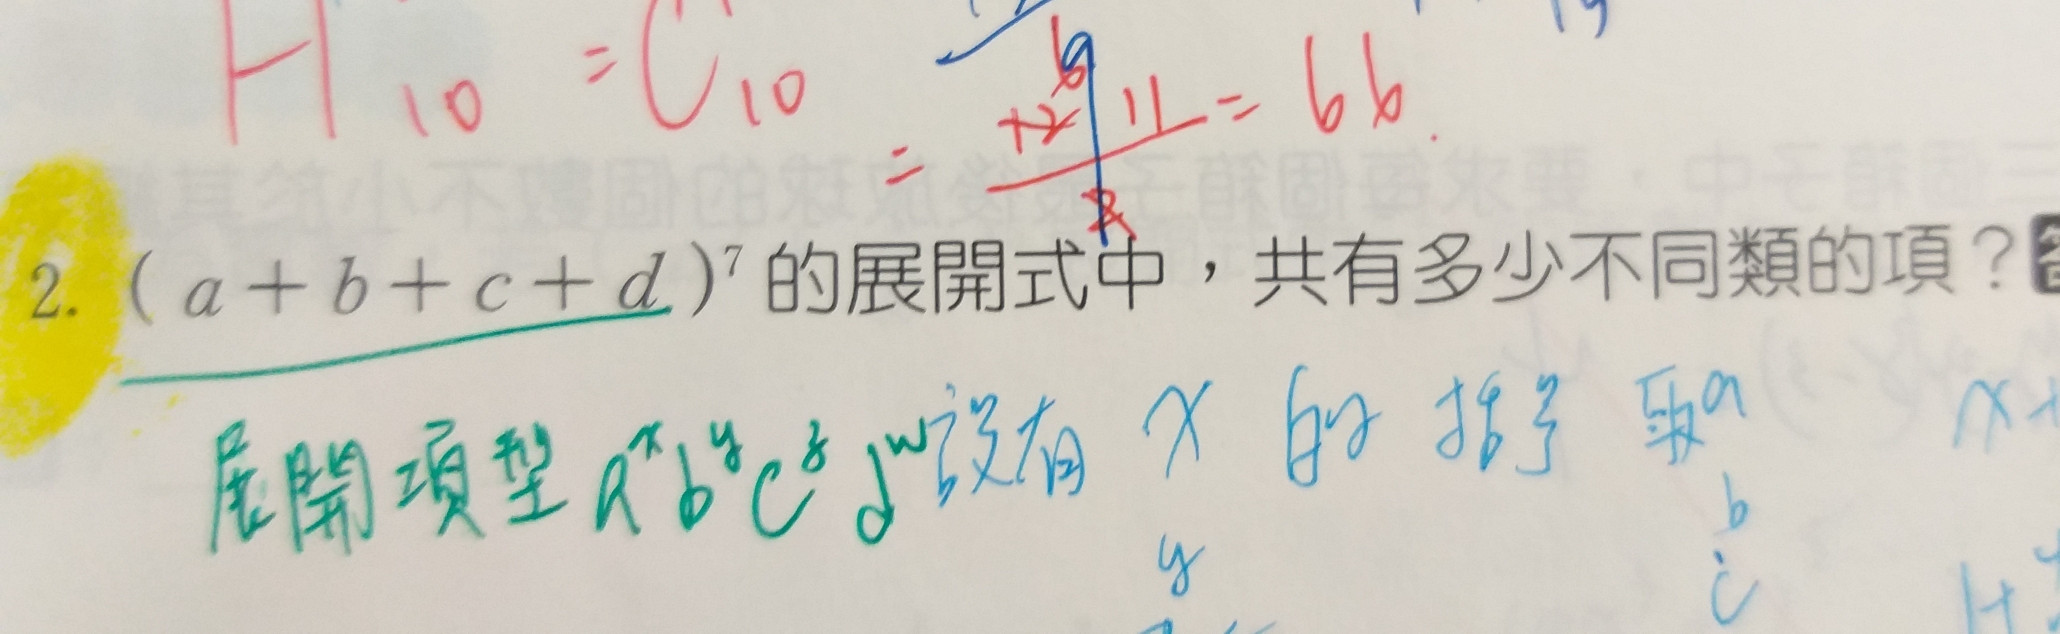 H 10 = C 10
= 12 11 = 66.
2
2. ( a + b + c + d )⁷ 的展開式中，共有多少不同類的項？
展開項型 aˣ bʸ cᶻ dʷ 設有 x 的 指 取 a x+
y b
c H